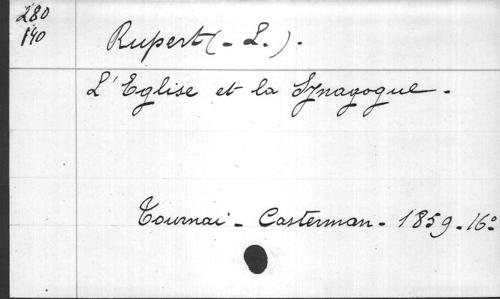 280
140
Rupert (- L.).
L'Eglise et la Synagogue -
Tournai - Casterman - 1859 - 16°